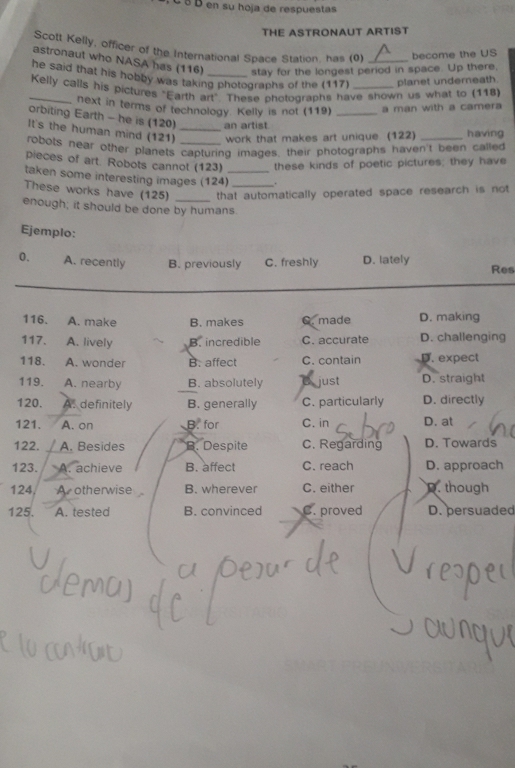 D en su hoja de respuestas
THE ASTRONAUT ARTIST
Scott Kelly, officer of the International Space Station, has (0) A become the US
astronaut who NASA has (116) ______ stay for the longest period in space. Up there,
he said that his hobby was taking photographs of the (117) ______ planet underneath.
Kelly calls his pictures "Earth art". These photographs have shown us what to (118)
______ next in terms of technology. Kelly is not (119) ______ a man with a camera
orbiting Earth – he is (120) ______ an artist.
It's the human mind (121) ______ work that makes art unique. (122) ______ having
robots near other planets capturing images, their photographs haven't been called
pieces of art. Robots cannot (123) ______ these kinds of poetic pictures; they have
taken some interesting images (124) ______.
These works have (125) ______ that automatically operated space research is not
enough; it should be done by humans.
Ejemplo:
0. A. recently B. previously C. freshly D. lately
Res
116. A. make B. makes C. made D. making
117. A. lively B. incredible C. accurate D. challenging
118. A. wonder B. affect C. contain D. expect
119. A. nearby B. absolutely C. just D. straight
120. A. definitely B. generally C. particularly D. directly
121. A. on B. for C. in D. at
sobro
122. A. Besides B. Despite C. Regarding D. Towards
123. A. achieve B. affect C. reach D. approach
124. A. otherwise B. wherever C. either D. though
125. A. tested B. convinced C. proved D. persuaded
demas de
a pesar de
respec
aunque